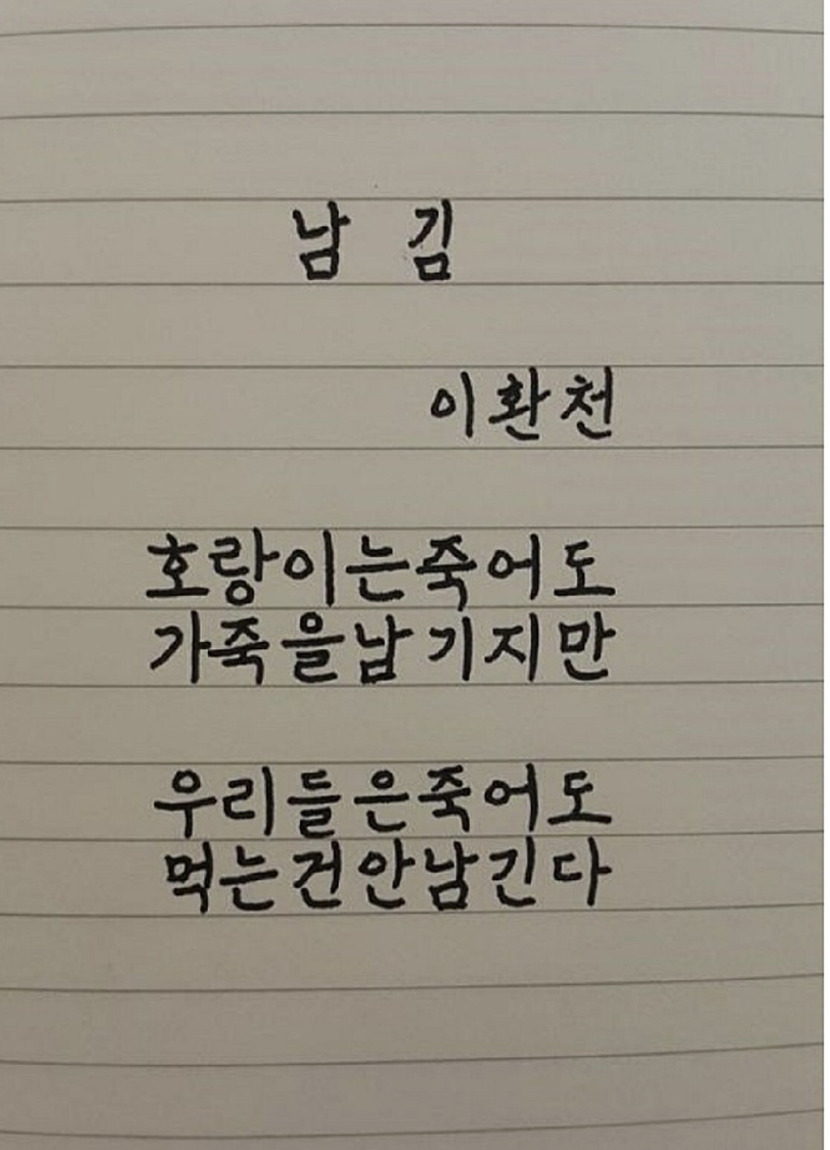 남 김
이환천
호랑이는죽어도
가죽을남기지만
우리들은죽어도
먹는건안남긴다